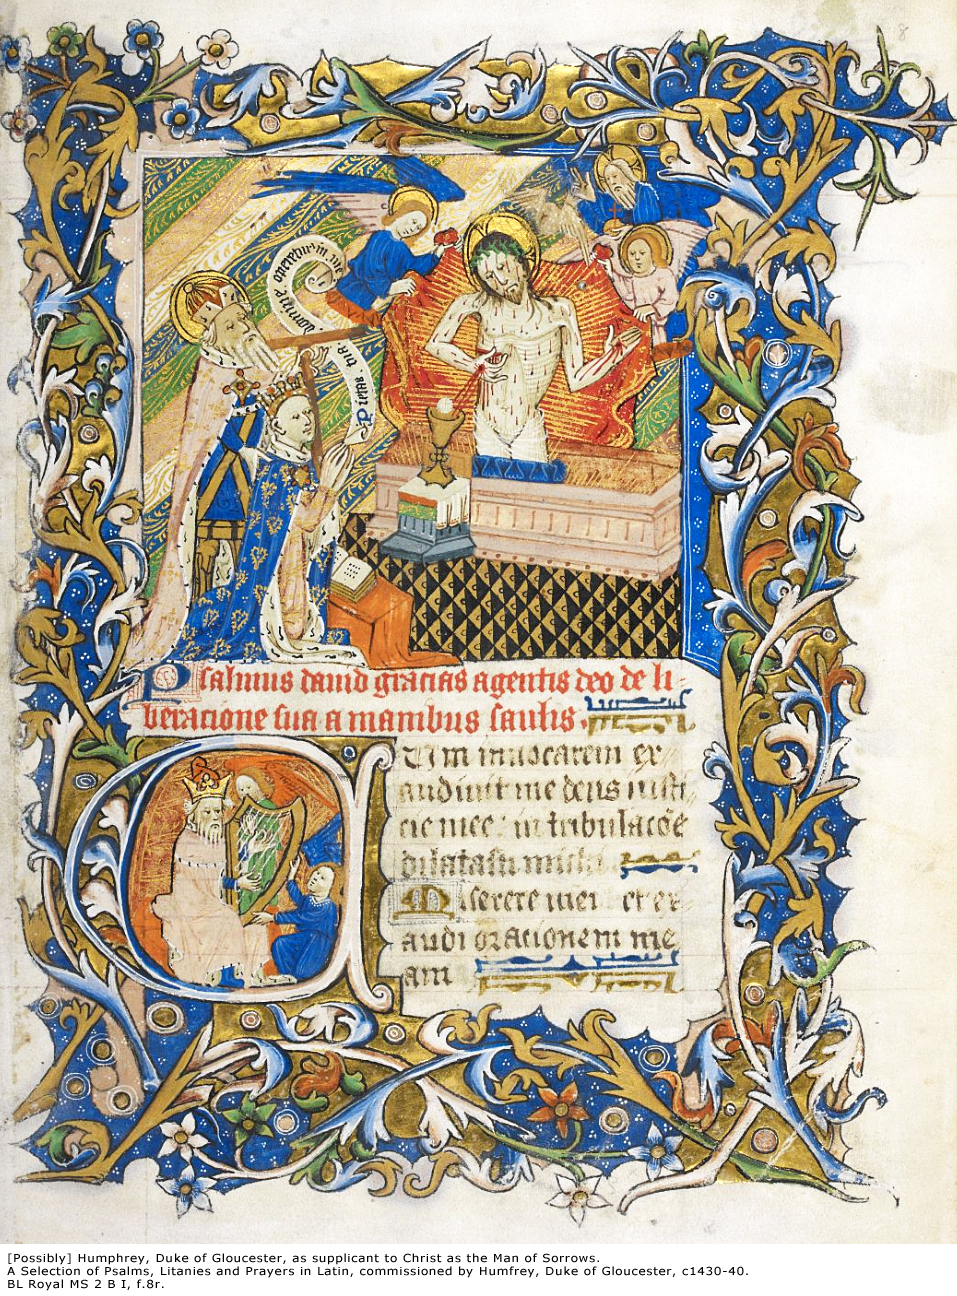 8
Pietas . tua
domine operetur in me
Psalmus dauid gracias agentis deo de li-
beracione sua a manibus saulis.
CUm inuocarem ex-
audiuit me deus iusti
cie mee : in tribulacõe
dilatasti michi
Miserere mei et ex-
audi oracionem me
am
[Possibly] Humphrey, Duke of Gloucester, as supplicant to Christ as the Man of Sorrows.
A Selection of Psalms, Litanies and Prayers in Latin, commissioned by Humfrey, Duke of Gloucester, c1430-40.
BL Royal MS 2 B I, f.8r.